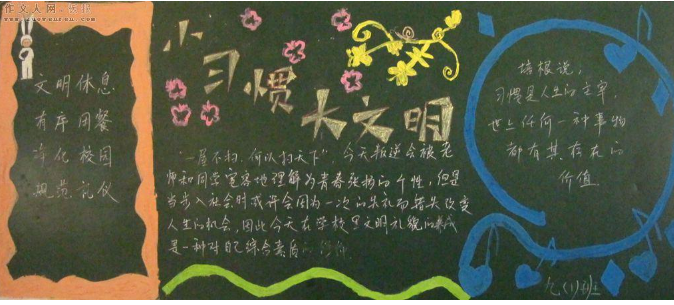 作文人网
文明休息
有序用餐
净化校园
规范礼仪
小习惯
大文明
"一屋不扫,何以扫天下",今天叛逆会被老
师和同学宽容地理解为青春张扬的个性,但是
当步入社会时或许会因为一次的失礼而错失改变
人生的机会,因此今天在学校里文明礼貌的养成
是一种对自己综合素质的
培根说:
习惯是人生的主宰,
世上任何一种事物
都有其存在的
价值
九(1)班